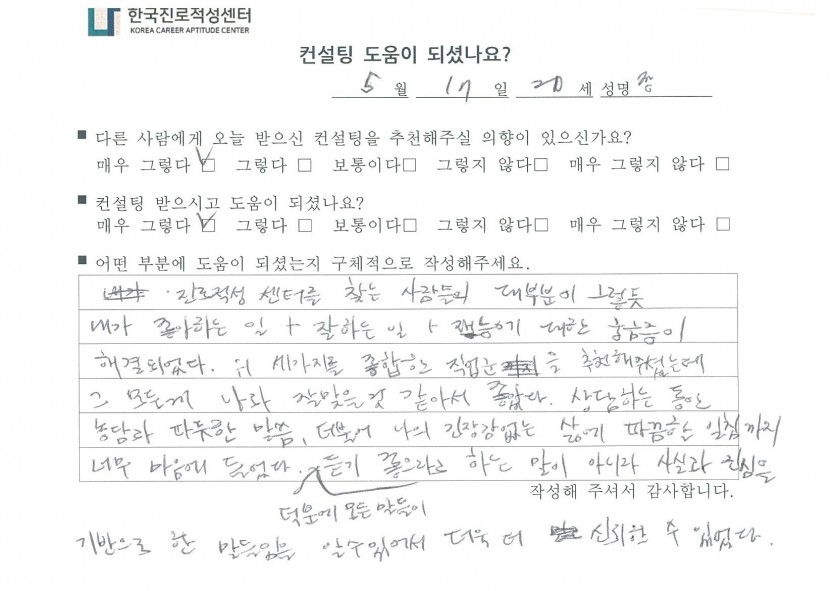 한국진로적성센터
KOREA CAREER APTITUDE CENTER
컨설팅 도움이 되셨나요?
5 월 17 일 20 세 성명 종
■ 다른 사람에게 오늘 받으신 컨설팅을 추천해주실 의향이 있으신가요?
매우 그렇다 ☑ 그렇다 □ 보통이다□ 그렇지 않다□ 매우 그렇지 않다 □
■ 컨설팅 받으시고 도움이 되셨나요?
매우 그렇다 ☑ 그렇다 □ 보통이다□ 그렇지 않다□ 매우 그렇지 않다 □
■ 어떤 부분에 도움이 되셨는지 구체적으로 작성해주세요.
진로적성 센터를 찾는 사람들의 대부분이 그렇듯
내가 좋아하는 일 + 잘하는 일 + 재능에 대한 궁금증이
해결되었다. 위 세가지를 종합한 직업군을 추천해주셨는데
그 모든게 나와 잘맞을것 같아서 좋았다. 상담하는 동안
농담과 따듯한 말씀, 더불어 나의 긴장감없는 삶에 따끔한 일침까지
너무 마음에 들었다. 듣기 좋으라고 하는 말이 아니라 사실과 진심을
작성해 주셔서 감사합니다.
덕분에 모든 말들이
기반으로 한 말들임을 알수있어서 더욱 더 신뢰할 수 있었다.